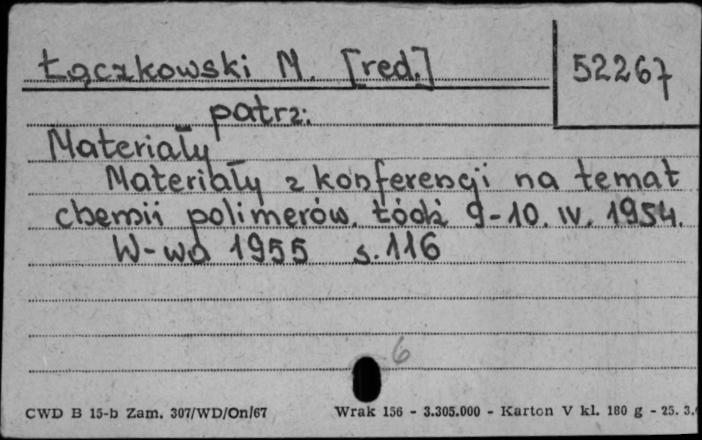 Łączkowski M. [red.] 52267
patrz:
Materiały
Materiały z konferencji na temat
chemii polimerów. Łódź 9-10. IV. 1954.
W-wa 1955 s. 116
6
CWD B 15-b Zam. 307/WD/On/67 Wrak 156 - 3.305.000 - Karton V kl. 180 g - 25. 3.